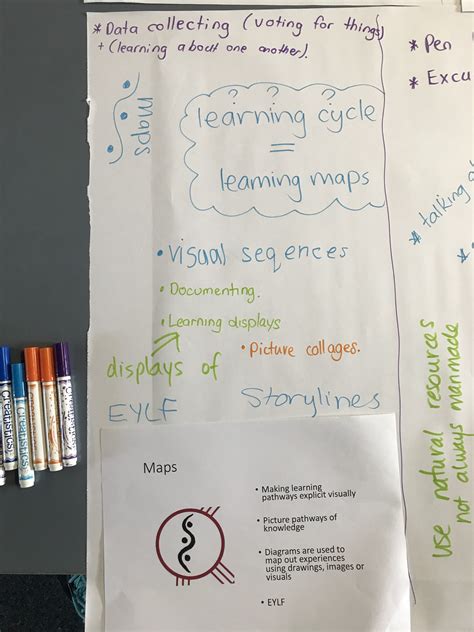 * Data collecting (voting for things)
+ (learning about one another).
Maps
? ? ?
learning cycle
=
learning maps
• Visual seqences
• Documenting.
• Learning displays
• Picture collages.
displays of
EYLF
Storylines
Maps
• Making learning
pathways explicit visually
• Picture pathways of
knowledge
• Diagrams are used to
map out experiences
using drawings, images or
visuals
• EYLF
* Pen
* Excu
* talking
use natural resources
not always manmade
Creatistics